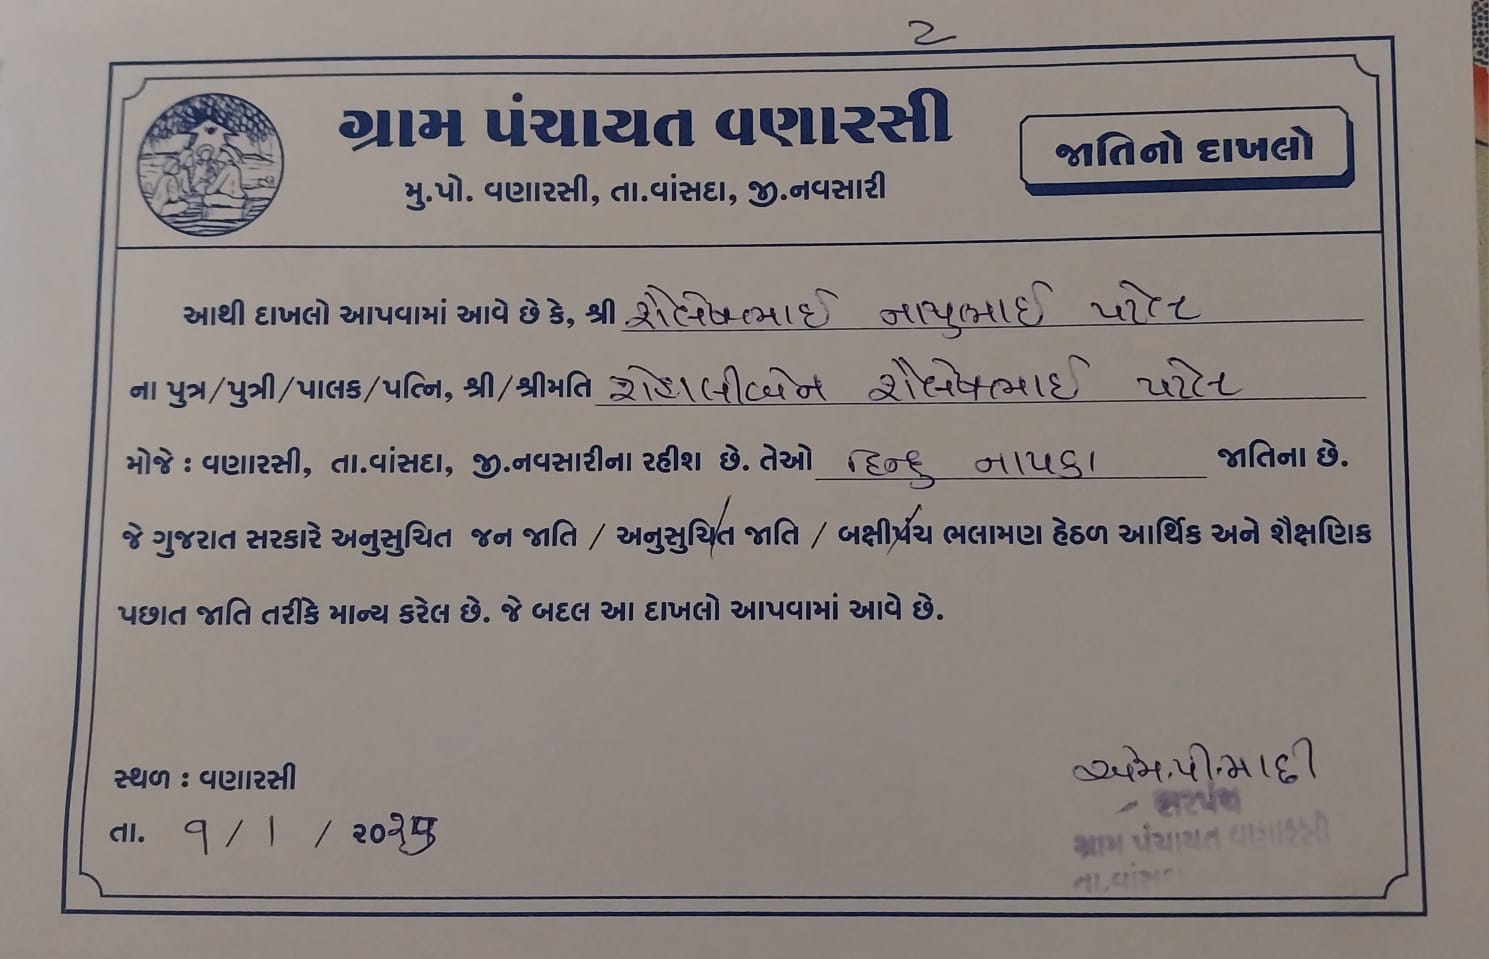 2
ગ્રામ પંચાયત વણારસી
જાતિનો દાખલો
મુ.પો. વણારસી, તા.વાંસદા, જી.નવસારી
આથી દાખલો આપવામાં આવે છે કે, શ્રી શૈલેષભાઈ નાયુભાઈ પટેલ
ના પુત્ર/પુત્રી/પાલક/પત્નિ, શ્રી/શ્રીમતિ શૈલેષભાઈ પટેલ
મોજે : વણારસી, તા.વાંસદા, જી.નવસારીના રહીશ છે. તેઓ હિન્દુ નાયકા જાતિના છે.
જે ગુજરાત સરકારે અનુસુચિત જન જાતિ / અનુસુચિત જાતિ / બક્ષીપંચ ભલામણ હેઠળ આર્થિક અને શૈક્ષણિક
પછાત જાતિ તરીકે માન્ય કરેલ છે. જે બદલ આ દાખલો આપવામાં આવે છે.
સ્થળ : વણારસી
એમ.પી.માહી
તા. ૧ / ૧ / ૨૦૨૫
સરપંચ
ગ્રામ પંચાયત વણારસી
તા.વાંસદા